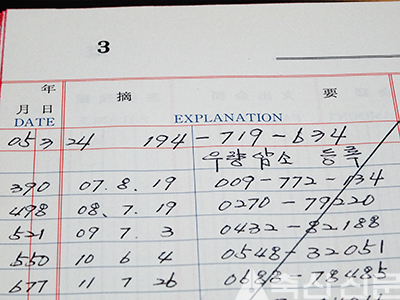 3
年
月 日 摘 要
DATE EXPLANATION
05 3 24 194-719-634
우량암소 등록
390 07. 8. 19 009-772-134
498 08. 7. 19 0270-79220
521 09 7. 3 0432-82188
550 10 6 4 0548-32051
677 11 7 26 0688-78485
축산신문